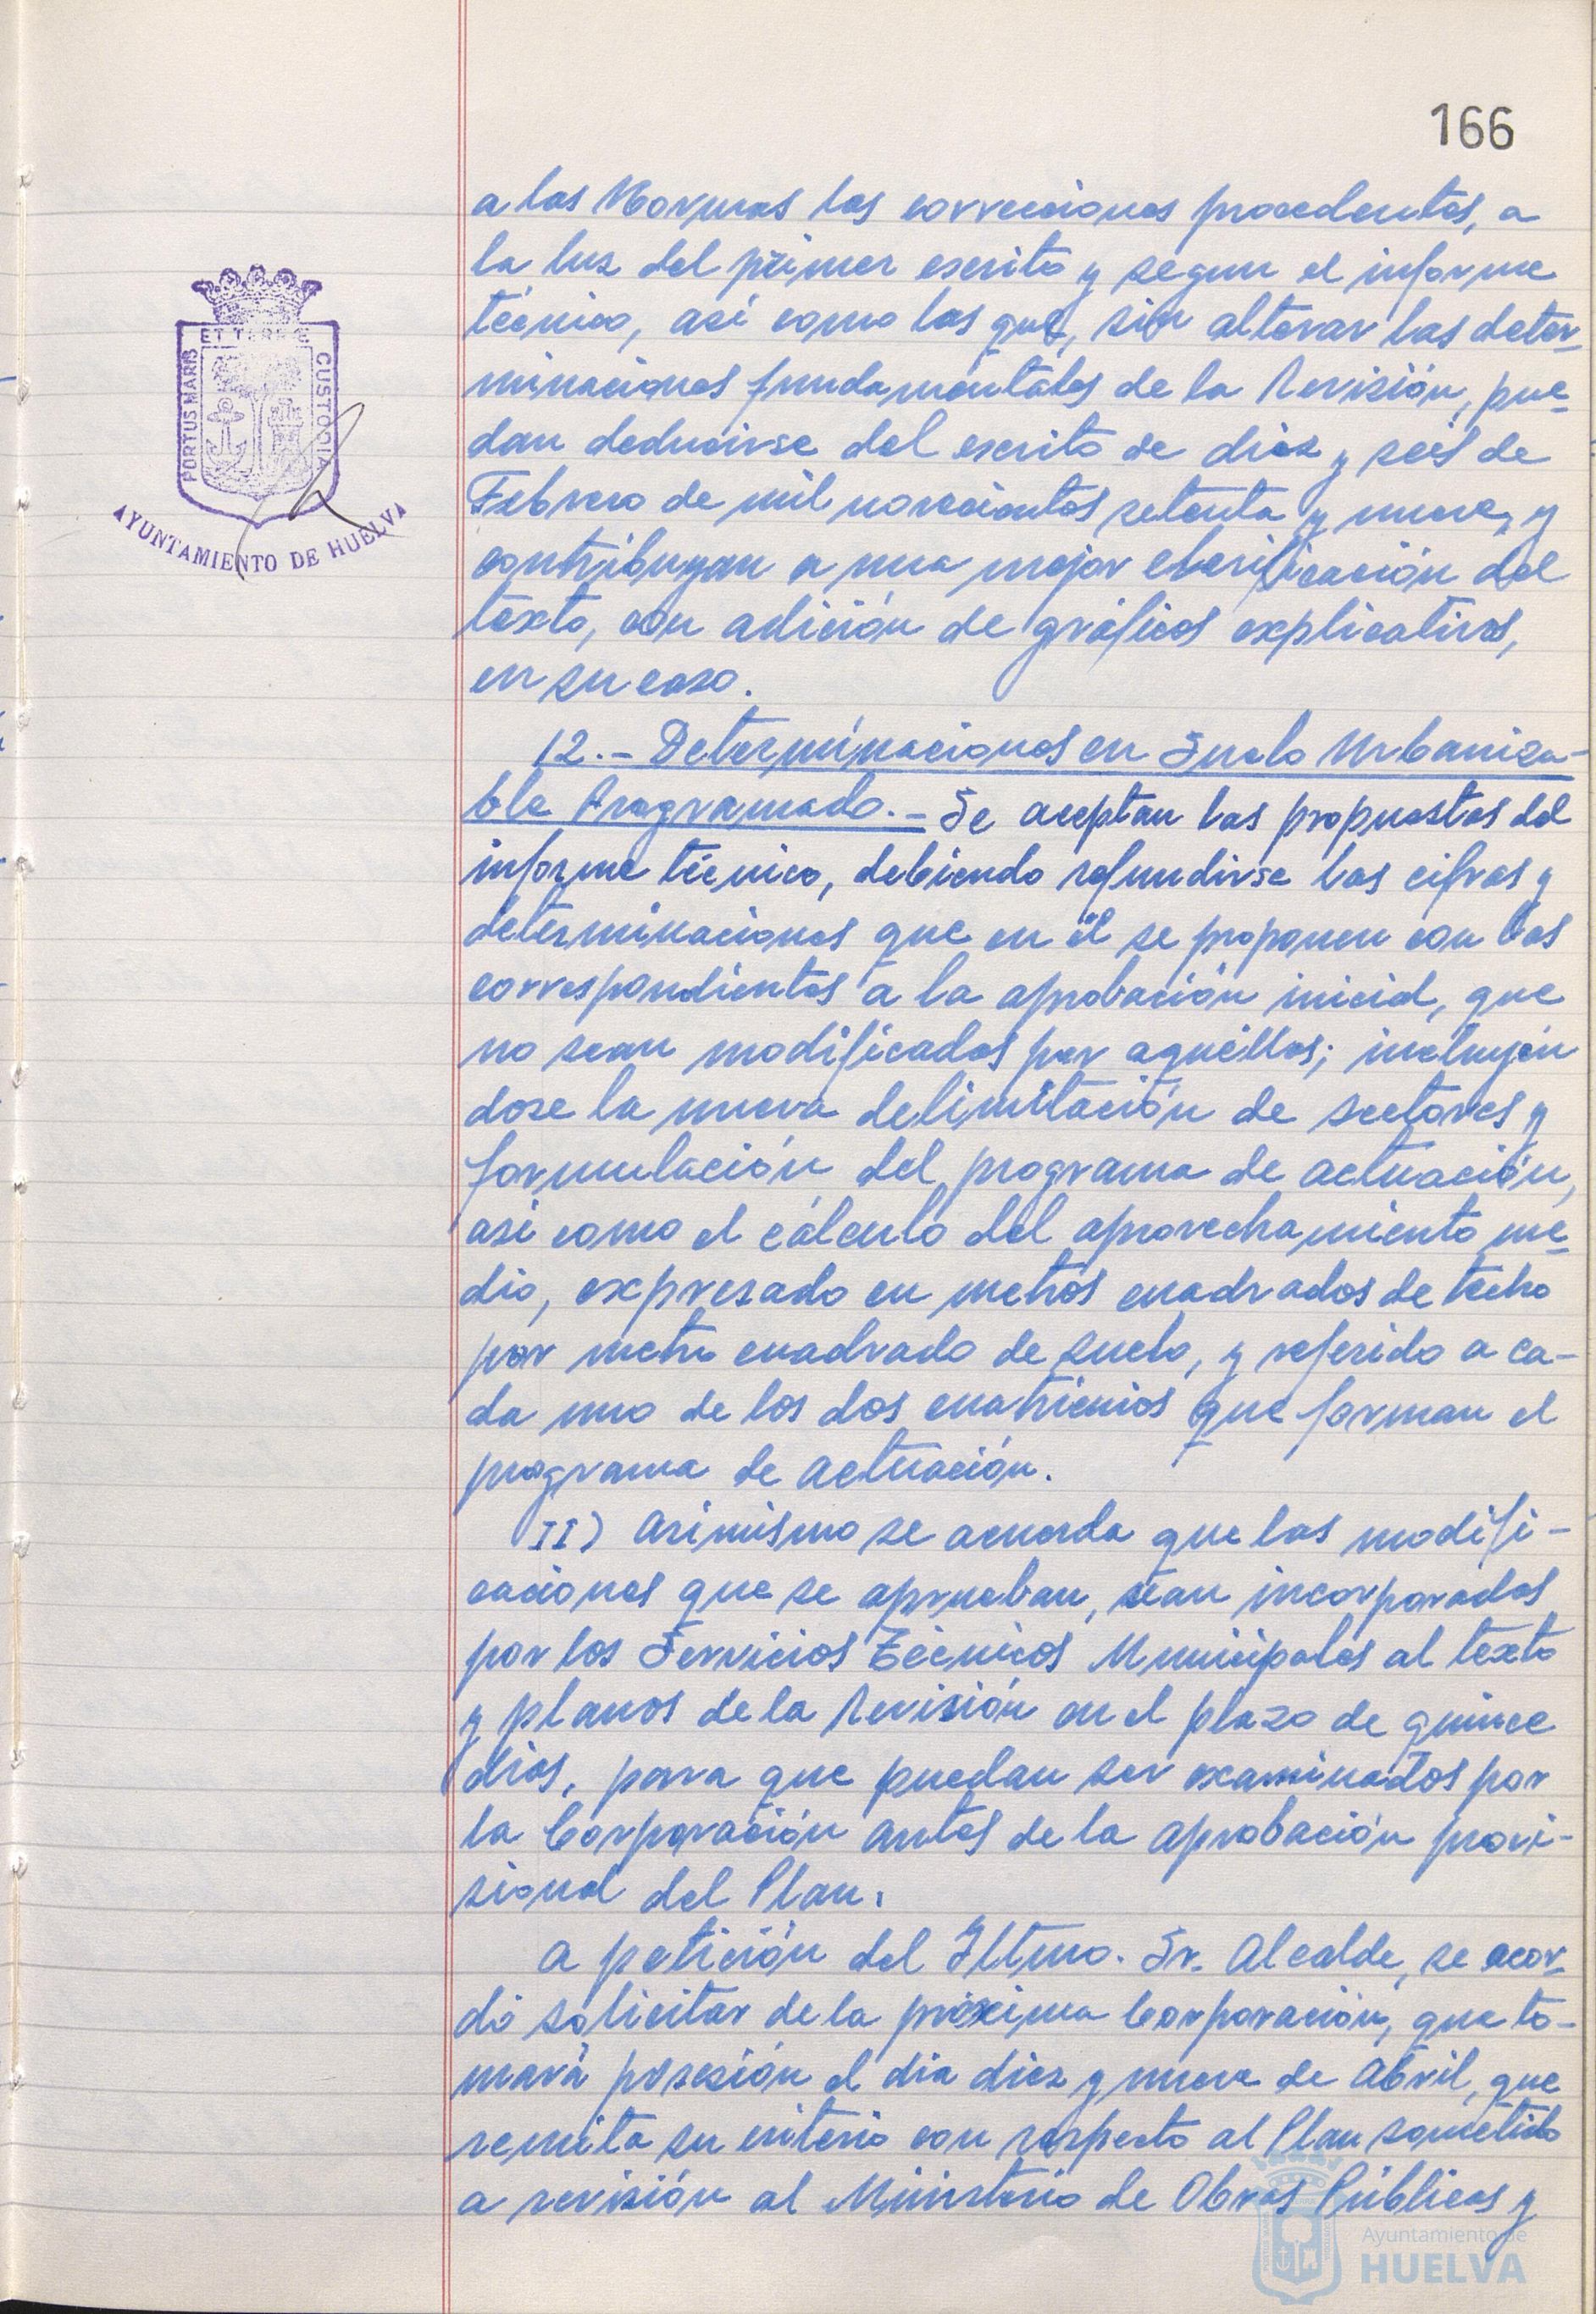 166
a las Normas las correcciones procedentes, a
la luz del primer escrito y segun el informe
técnico, asi como las que, sin alterar las deter-
minaciones fundamentales de la Revisión, pue-
dan deducirse del escrito de diez y seis de
Febrero de mil novecientos setenta y nueve, y
contribuyan a una mejor clarificación del
texto, con adición de gráficos explicativos,
en su caso.
12.- Determinaciones en Suelo Urbaniza-
ble Programado.- Se aceptan las propuestas del
informe técnico, debiendo refundirse las cifras y
determinaciones que en él se proponen con las
correspondientes a la aprobación inicial, que
no sean modificadas por aquéllas; incluyén
dose la nueva delimitación de sectores y
formulación del programa de actuación,
asi como el cálculo del aprovechamiento me-
dio, expresado en metros cuadrados de techo
por metro cuadrado de suelo, y referido a ca-
da uno de los dos cuatrienios que forman el
programa de actuación.
II) Asimismo se acuerda que las modifi-
caciones que se aprueban, sean incorporadas
por los Servicios Técnicos Municipales al texto
y planos de la Revisión en el plazo de quince
dias, para que puedan ser examinados por
la Corporación antes de la aprobación provi-
sional del Plan.
A petición del Iltmo. Sr. Alcalde, se acor-
dó solicitar de la próxima Corporación, que to-
mará posesión el dia diez y nueve de Abril, que
remita su criterio con respecto al Plan sometido
a revisión al Ministerio de Obras Públicas y
PORTUS MARIS
ET TERRE
CUSTODIA
AYUNTAMIENTO DE HUELVA
Ayuntamiento de
HUELVA